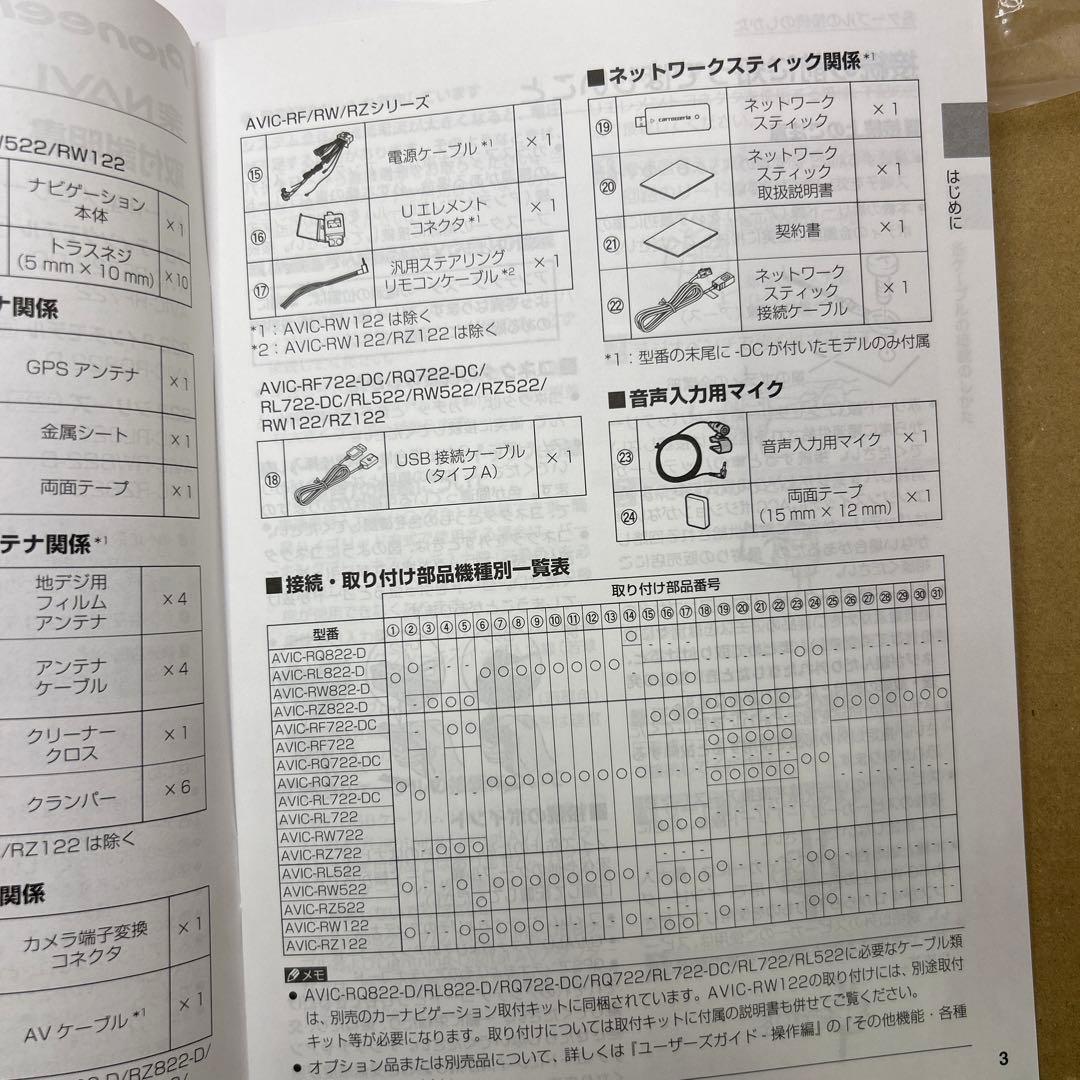 V522/RW122
ナビゲーション
本体
×1
トラスネジ
(5 mm × 10 mm)
×10
ナ関係
GPS アンテナ
×1
金属シート
×1
両面テープ
×1
テナ関係*1
地デジ用
フィルム
アンテナ
×4
アンテナ
ケーブル
×4
クリーナー
クロス
×1
クランパー
×6
/RZ122 は除く
関係
カメラ端子変換
コネクタ
×1
AV ケーブル*1
×1
AVIC-RF/RW/RZシリーズ
⑮
電源ケーブル*1
×1
⑯
Uエレメント
コネクタ*1
×1
⑰
汎用ステアリング
リモコンケーブル*2
×1
*1：AVIC-RW122 は除く
*2：AVIC-RW122/RZ122 は除く
AVIC-RF722-DC/RQ722-DC/
RL722-DC/RL522/RW522/RZ522/
RW122/RZ122
⑱
USB 接続ケーブル
（タイプ A）
×1
■ネットワークスティック関係*1
⑲
carrozzeria
ネットワーク
スティック
×1
⑳
ネットワーク
スティック
取扱説明書
×1
㉑
契約書
×1
㉒
ネットワーク
スティック
接続ケーブル
×1
*1：型番の末尾に -DC が付いたモデルのみ付属
■音声入力用マイク
㉓
音声入力用マイク
×1
㉔
両面テープ
（15 mm × 12 mm）
×1
■接続・取り付け部品機種別一覧表
取り付け部品番号
型番 ① ② ③ ④ ⑤ ⑥ ⑦ ⑧ ⑨ ⑩ ⑪ ⑫ ⑬ ⑭ ⑮ ⑯ ⑰ ⑱ ⑲ ⑳ ㉑ ㉒ ㉓ ㉔ ㉕ ㉖ ㉗ ㉘ ㉙ ㉚ ㉛
AVIC-RQ822-D
AVIC-RL822-D
AVIC-RW822-D
AVIC-RZ822-D
AVIC-RF722-DC
AVIC-RF722
AVIC-RQ722-DC
AVIC-RQ722
AVIC-RL722-DC
AVIC-RL722
AVIC-RW722
AVIC-RZ722
AVIC-RL522
AVIC-RW522
AVIC-RZ522
AVIC-RW122
AVIC-RZ122
メモ
● AVIC-RQ822-D/RL822-D/RQ722-DC/RQ722/RL722-DC/RL722/RL522に必要なケーブル類
は、別売のカーナビゲーション取付キットに同梱されています。AVIC-RW122の取り付けには、別途取付
キット等が必要になります。取り付けについては取付キットに付属の説明書も併せてご覧ください。
● オプション品または別売品について、詳しくは『ユーザーズガイド - 操作編』の「その他機能・各種
はじめに
3